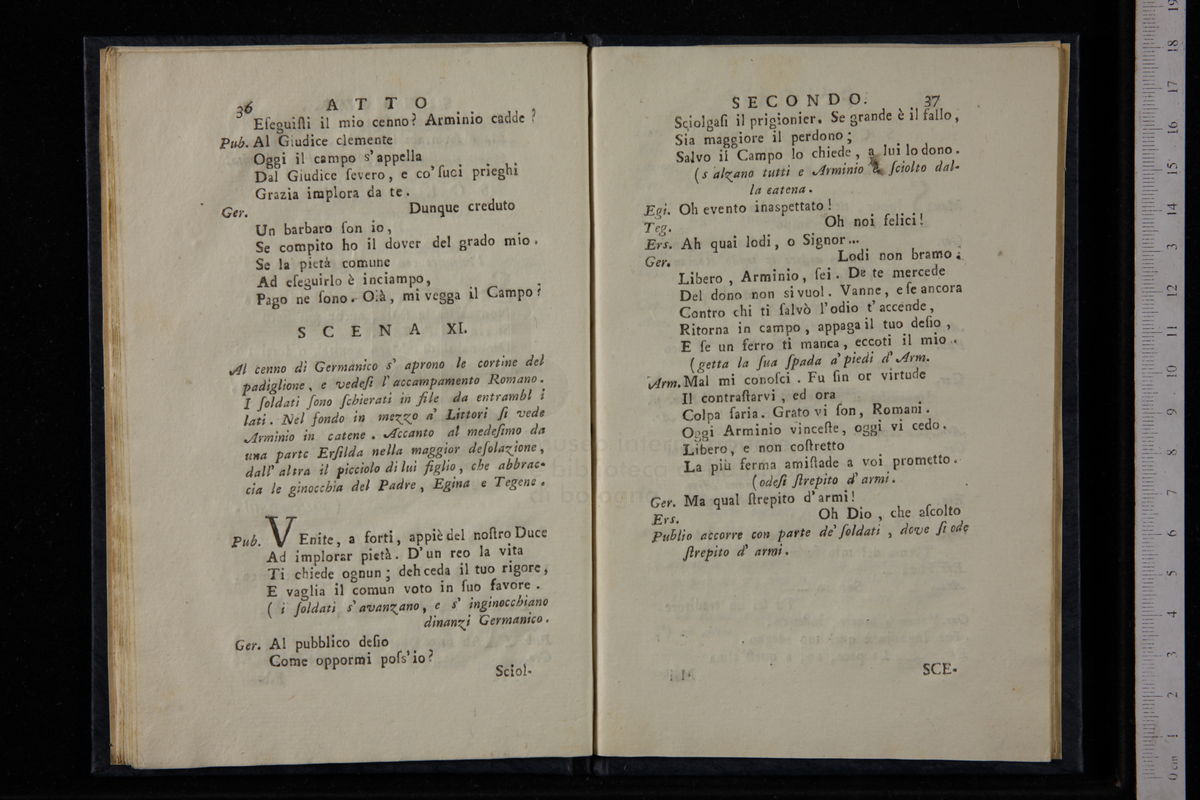 36 ATTO
Eſeguiſti il mio cenno? Arminio cadde?
Pub. Al Giudice clemente
Oggi il campo s'appella
Dal Giudice ſevero, e co' ſuoi prieghi
Grazia implora da te.
Ger. Dunque creduto
Un barbaro ſon io,
Se compito ho il dover del grado mio.
Se la pietà comune
Ad eſeguirlo è inciampo,
Pago ne ſono. Olà, mi vegga il Campo?
SCENA XI.
Al cenno di Germanico s' aprono le cortine del
padiglione, e vedeſi l' accampamento Romano.
I ſoldati ſono ſchierati in file da entrambi i
lati. Nel fondo in mezzo a' Littori ſi vede
Arminio in catene. Accanto al medeſimo da
una parte Erſilda nella maggior deſolazione,
dall' altra il picciolo di lui figlio, che abbrac-
cia le ginocchia del Padre, Egina e Tegene.
Pub. VEnite, a forti, appiè del noſtro Duce
Ad implorar pietà. D'un reo la vita
Ti chiede ognun; deh ceda il tuo rigore,
E vaglia il comun voto in ſuo favore.
( i ſoldati s' avanzano, e s' inginocchiano
dinanzi Germanico.
Ger. Al pubblico deſio
Come oppormi poſs'io?
Sciol-
SECONDO. 37
Sciolgaſi il prigionier. Se grande è il fallo,
Sia maggiore il perdono;
Salvo il Campo lo chiede, a lui lo dono.
(s' alzano tutti e Arminio è ſciolto dal-
la catena.
Egi. Oh evento inaspettato!
Teg. Oh noi felici!
Ers. Ah quai lodi, o Signor...
Ger. Lodi non bramo.
Libero, Arminio, ſei. De te mercede
Del dono non si vuol. Vanne, e ſe ancora
Contro chi ti ſalvò l'odio t'accende,
Ritorna in campo, appaga il tuo deſio,
E ſe un ferro ti manca, eccoti il mio..
(getta la ſua ſpada a' piedi d' Arm.
Arm. Mal mi conoſci. Fu ſin or virtude
Il contraſtarvi, ed ora
Colpa ſaria. Grato vi ſon, Romani.
Oggi Arminio vinceſte, oggi vi cedo.
Libero, e non coſtretto
La più ferma amiſtade a voi prometto.
(odeſi ſtrepito d' armi.
Ger. Ma qual ſtrepito d'armi!
Ers. Oh Dio, che aſcolto
Publio accorre con parte de' ſoldati, dove ſi ode
ſtrepito d' armi.
SCE-
museo inter
biblioteca
di bologna
0 cm 1 2 3 4 5 6 7 8 9 10 11 12 13 14 15 16 17 18 19